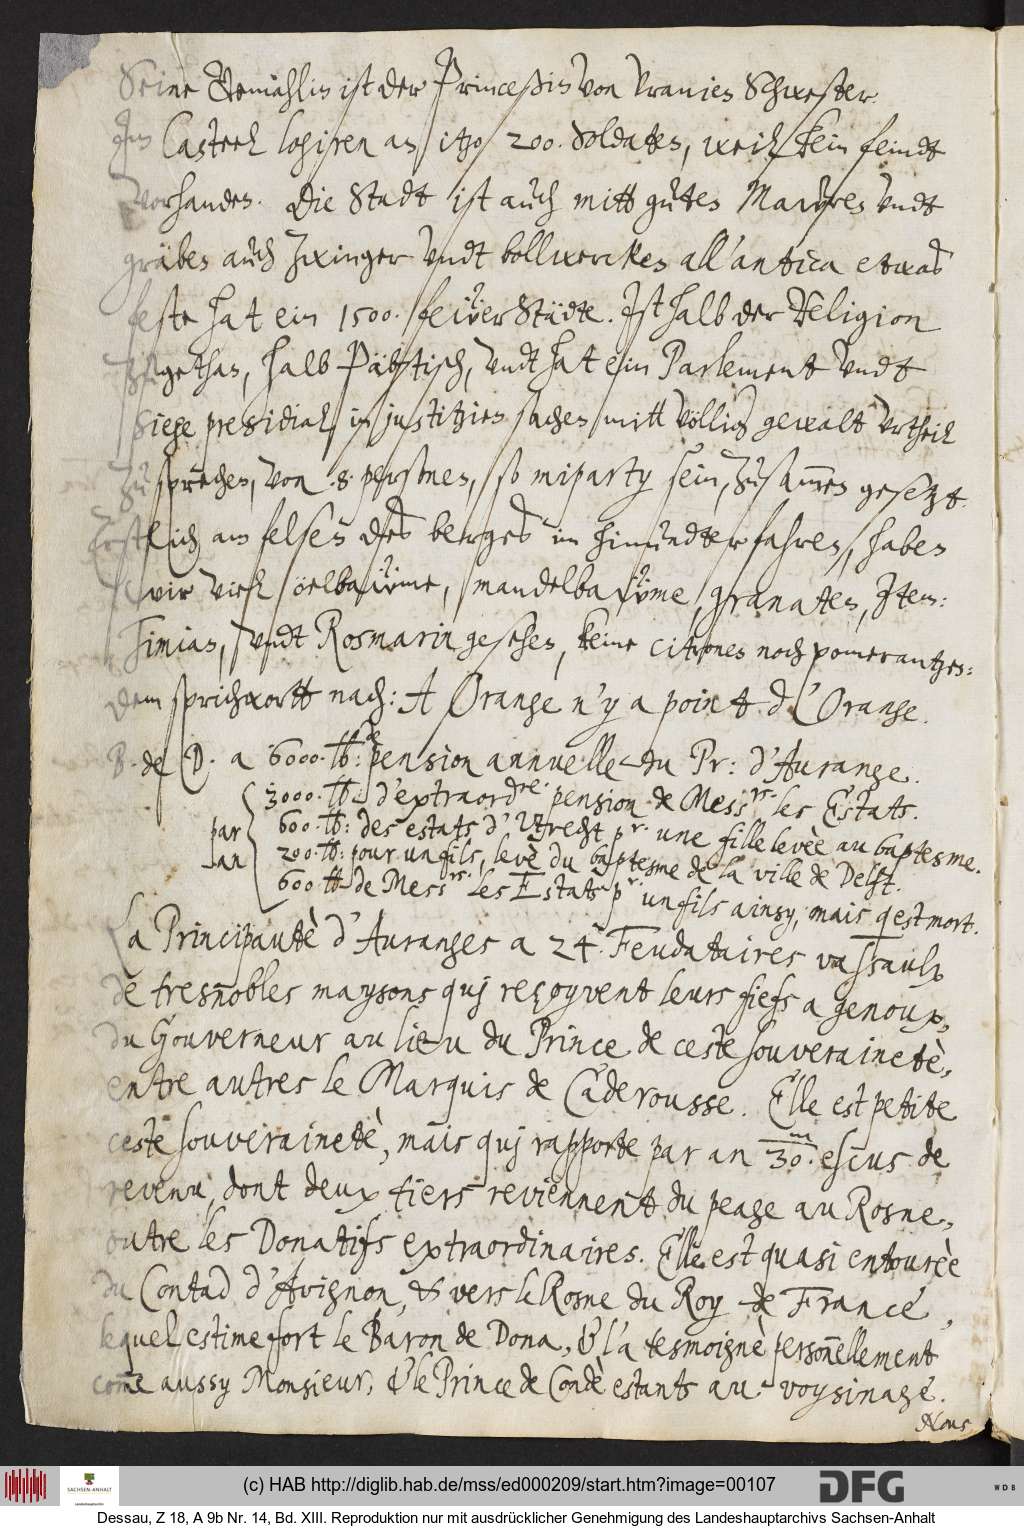 Seine Gemahlin ist der Princeßin von Uranien Schwester.
Im Casteel logiren an itzo 200. Soldaten, weil kein feindt
vorhanden. Die Stadt ist auch mitt guten Mauren undt
gräben auch zwinger undt bollwercken all'antica etwaß
feste hat ein 1500. feüer Städte. Ist halb der Religion
zugethan, halb Päbstisch, undt hat ein Parlement undt
Siege presidial in justitzien sachen mitt völlig gewalt Urtheil
zu sprechen, von .8. personen, so miparty sein, zusammen gesetzt.
Erstlich am felsen des berges im hinundter fahren, haben
wir viel öelbaüme, mandelbaüme, granaten, Item:
Timian, undt Rosmarin gesehen, keine citronen noch pomerantzen:
dem sprichwortt nach: A Orange n'y a point d'Orange.
B. de D. a 6000. lb: de pension annuelle du Pr: d'Aurange.
3000. lb: d'extraordre. pension de Messrs. les Estats.
par an 600. lb: des estats d'Utrecht pr. une fille levèe au baptesme.
200. lb: pour un fils, levè du baptesme de la ville de Delft.
600 lb de Messrs. les Estats pr. un fils ainsy, mais q est mort.
La Principautè d'Auranges a 24. Feudataires vassaulx
de tresnobles maysons quj reçoyvent leurs fiefs a genoux,
du Gouverneur au lieu du Prince de ceste souverainetè,
entre autres le Marquis de Caderousse. Elle est petite
ceste souverainetè, mais quj rapporte par an 30.m escus de
revenu, dont deux tiers reviennent du peage au Rosne,
outre les Donatifs extraordinaires. Elle est quasi entourèe
du Contad d'Avignon, & vers le Rosne du Roy de France,
lequel estime fort le Baron de Dona, & l'a tesmoignè personnellement
comme aussy Monsieur, & le Prince de Condè estants au voysinage.
Nous
(c) HAB http://diglib.hab.de/mss/ed000209/start.htm?image=00107
SACHSEN-ANHALT
DFG
WDB
Dessau, Z 18, A 9b Nr. 14, Bd. XIII. Reproduktion nur mit ausdrücklicher Genehmigung des Landeshauptarchivs Sachsen-Anhalt